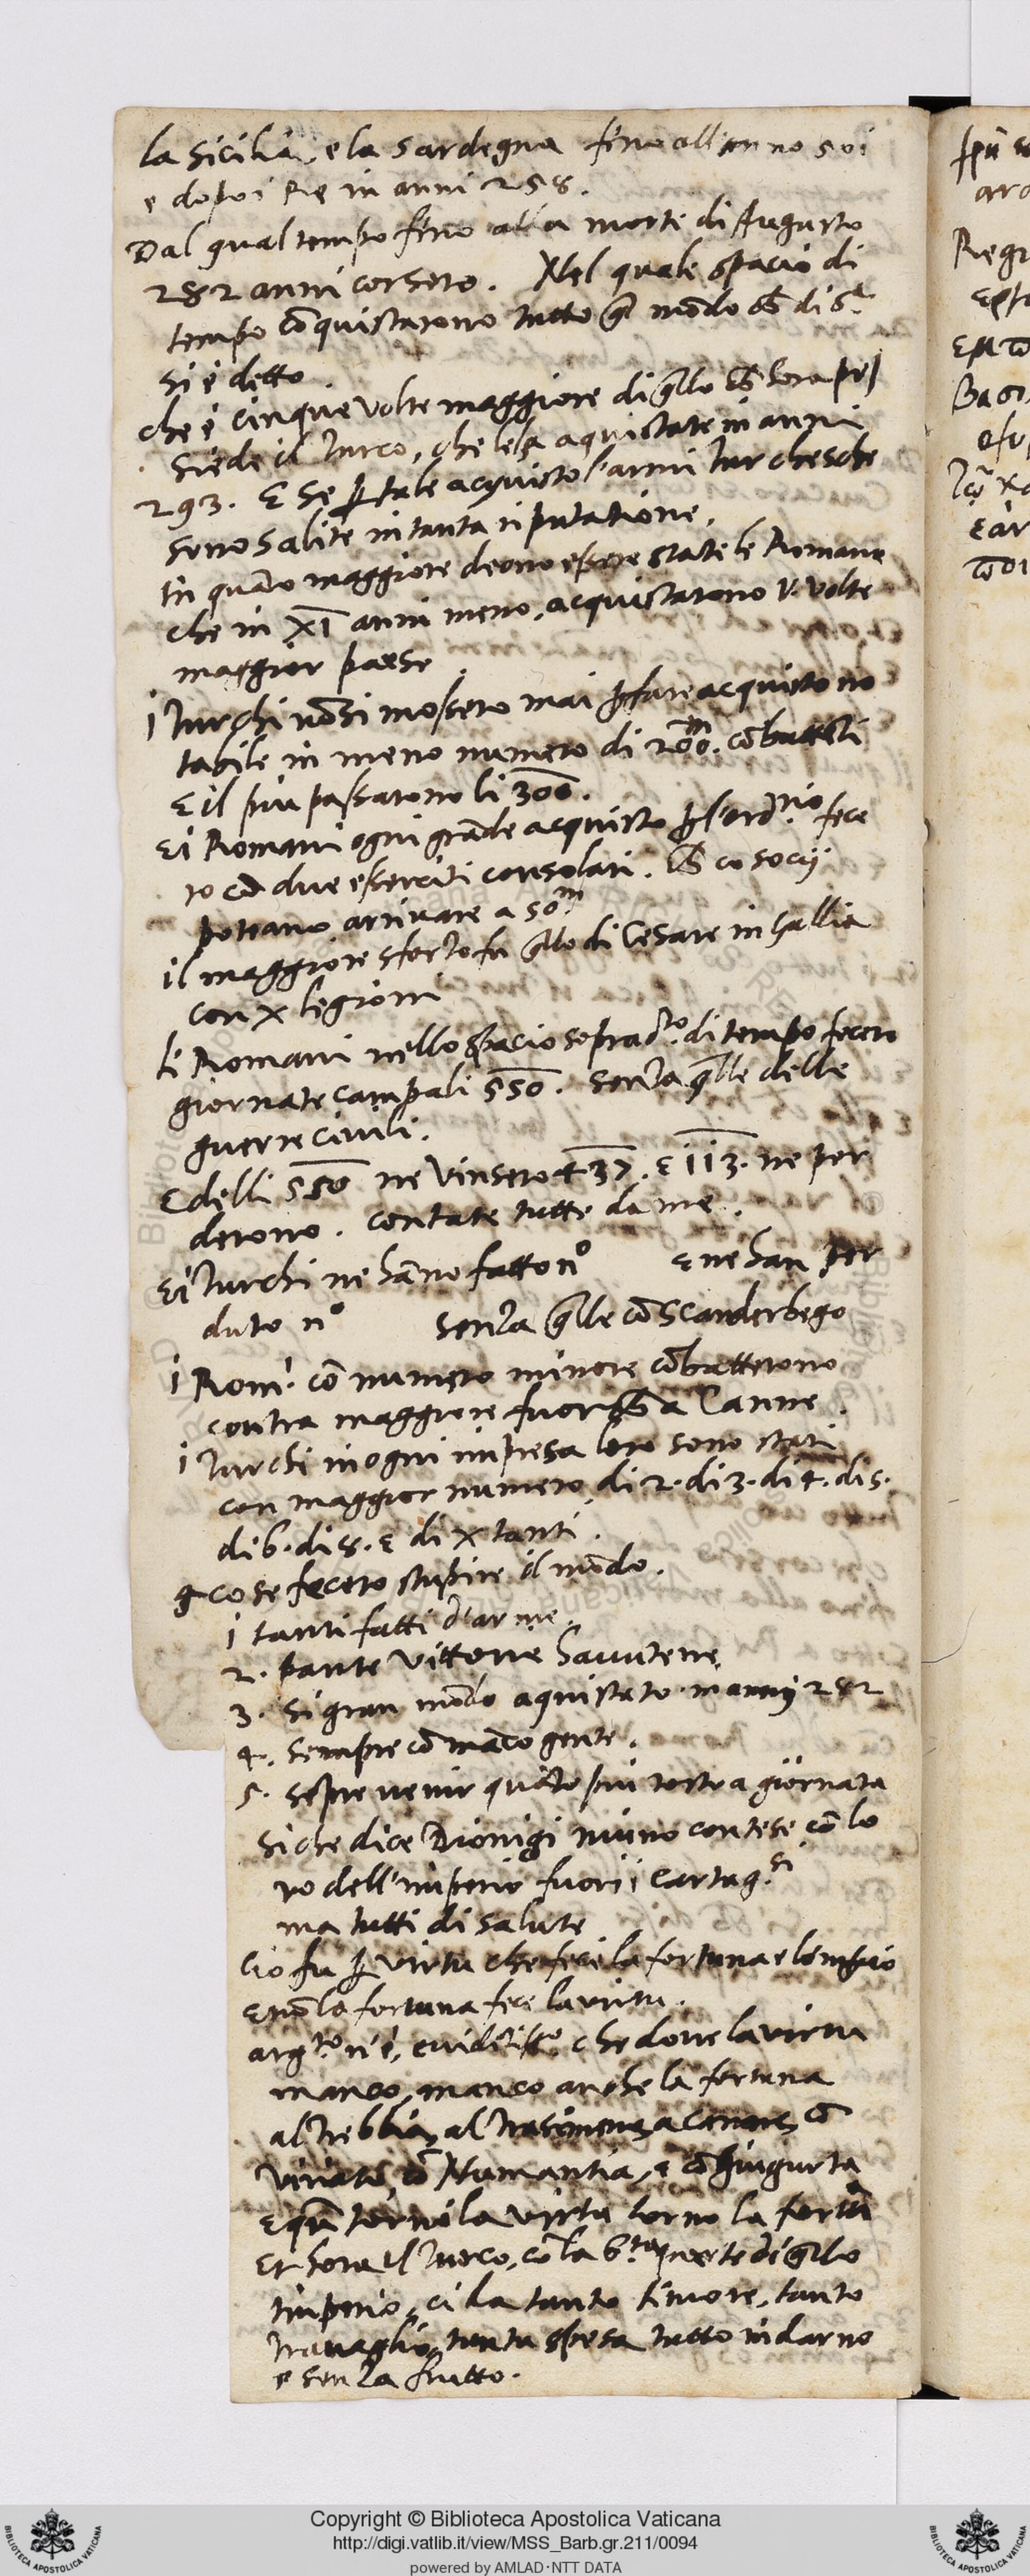 la Sicilia, e la Sardegna fino all'anno 501
e dopo i Re in anni 258.
Dal qual tempo fino alla morte di Augusto
282 anni corsero. Nel quale spacio di
tempo cõquistarono tutto mõdo di
si è detto.
che è cinque volte maggiore di q̃llo hora pos
siede il Turco, che le ha aquistate in anni
293. E se tale acquisto l'armi Turchesche
sono salite in tanta riputatione.
In quãto maggiore deono essere state le Romane
che in XI anni meno, acquistarono V. volte
maggior paese.
i Turchi nõ si mossero mai fare acquisto no
tabile in meno numero di 200.m cõbattẽti
E il più passarono li 300.
Ei Romani ogni grãde acquisto l'ordrio fece
ro cõ due esserciti consolari. co socij
poteano arrivare a 50m
il maggiore sforzo fu q̃llo di Cesare in Gallia
con X legioni
li Romani nello spacio sopradto. di tempo fecero
giornate campali 550. senza q̃lle delle
guerre civili.
E delli 550 ne vinsero 437. E 113. ne per
derono. contate tutte da me.
Ei Turchi ne hãno fatto no E ne han per
duto no senza q̃lle cõ Scanderbego
i Rom. cõ numero minore cõbatterono
contra maggiore fuor a Canne.
i Turchi in ogni impresa loro sono stati
con maggior numero di 2. di 3. di 4. di 5.
di 6. di 8. E di X tanti.
cose fecero stupire il mõdo.
1 tanti fatti d'arme.
2. tante vittorie havutene
3. si gran mõdo aquistato in anni 282
4. sempre cõ mãco gente.
5. sẽpre venir quãto più tosto a giornata
Si che dice Dionigi niuno contese cõ lo
ro dell'imperio fuori i Cartag.si
ma tutti di salute
Ciò fu virtu che fece la fortuna e l'imperio
E nõ la fortuna fece la virtu.
argto n'è, evidẽtisso che dove la virtu
manco, manco anche la fortuna
al Trebbia, al Trasimeno, a Canne, cõ
Viriato, cõ Numantia, e cõ Giugurta
E quãdo tornò la virtu torno la fortũa
Et hora il Turco, cõ la 6.ta parte di q̃llo
Imperio, ci da tanto timore, tanto
travaglio, tanta spesa tutto indarno
e senza frutto.
Copyright © Biblioteca Apostolica Vaticana
http://digi.vatlib.it/view/MSS_Barb.gr.211/0094
powered by AMLAD·NTT DATA